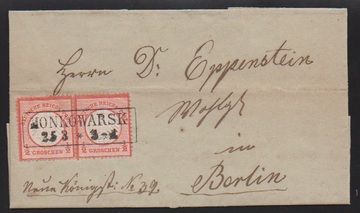 Herrn Dr. Eppenstein
Wohlg.
in
Berlin
Neue Königstr. No 39.
MONKOWARSK
25 3
GROSCHEN GROSCHEN